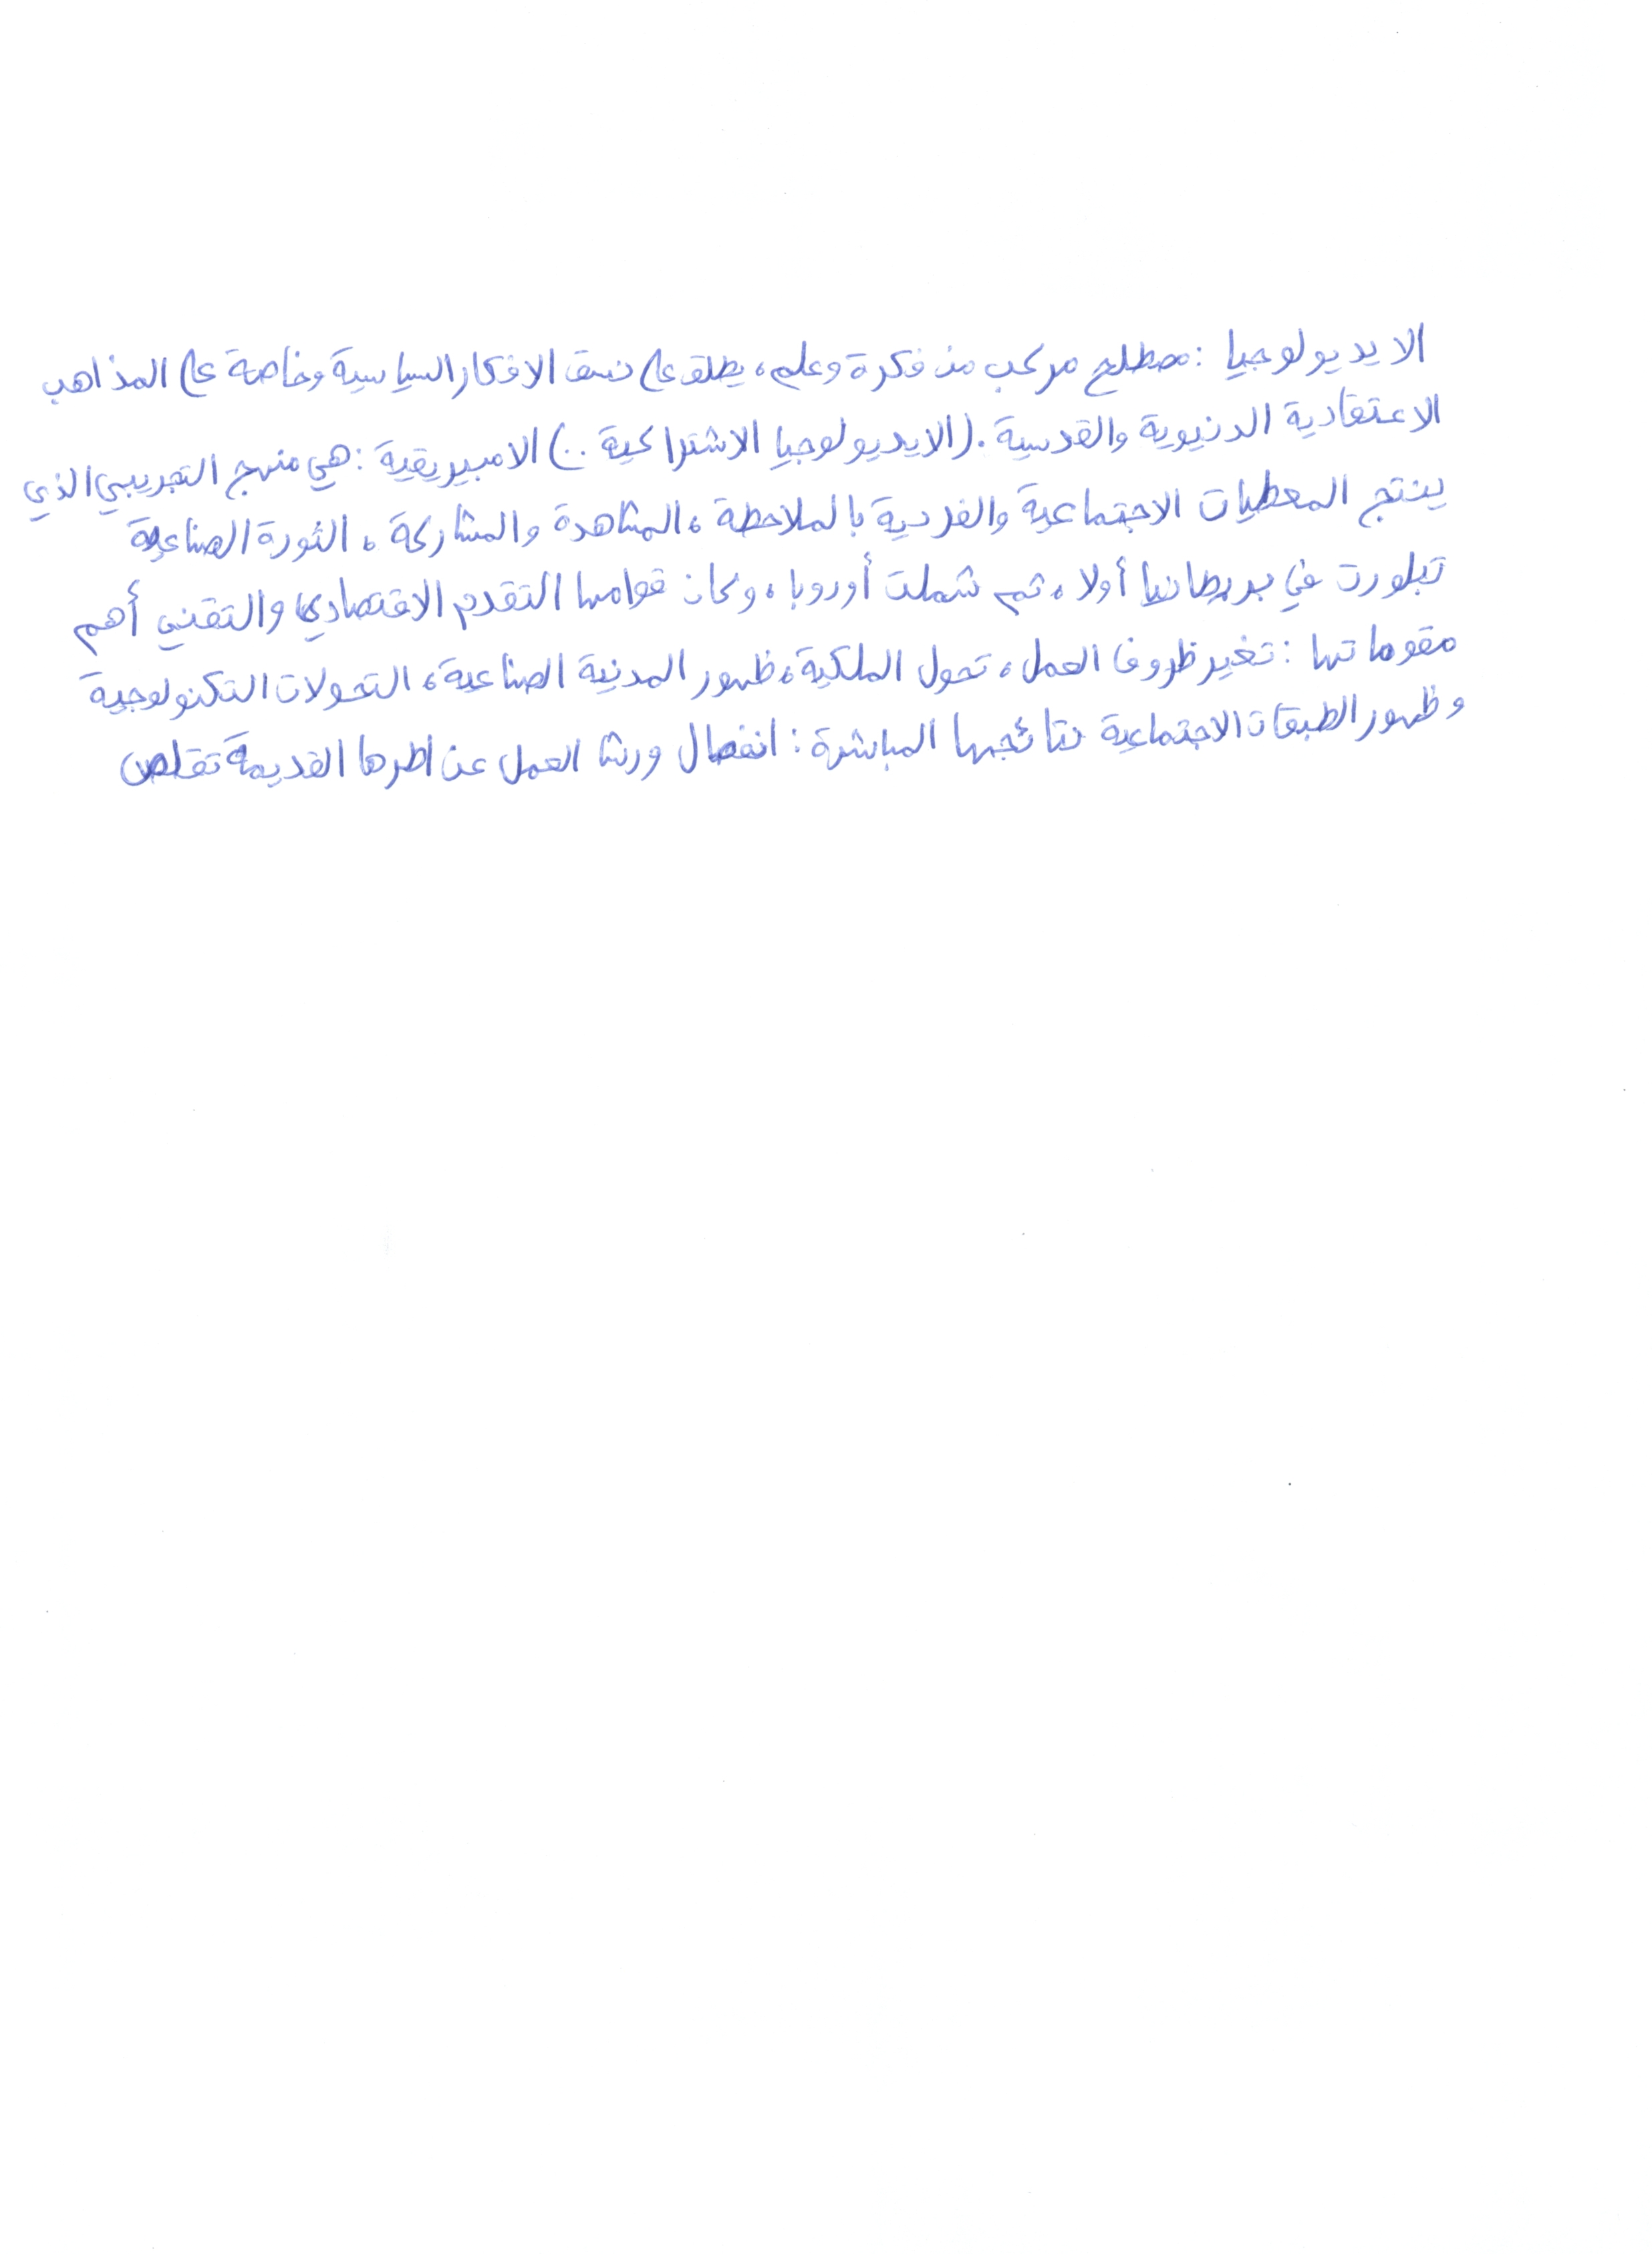 الايديولوجيا : مصطلح مركب من فكرة وعلم، يطلق على نسق الافكار السياسية وخاصة على المذاهب
الاعتقادية الدنيوية والقدسية . (الايديولوجيا الاشتراكية ..) الامبيريقية : هي منهج التجريبي الذي
ينتج المعطيات الاجتماعية والفردية بالملاحظة ، المشاهدة والمشاركة ، الثورة الصناعية
تبلورت في بريطانيا أولا ، ثم شملت أوروبا ، وكان قوامها التقدم الاقتصادي والتقني أهم
مقوماتها : تغير ظروف العمل ، تحول الملكية ، ظهور المدنية الصناعية ، التحولات التكنولوجية
وظهور الطبقات الاجتماعية نتائجها المباشرة : انفصال ورشا العمل عن اطرها القديمة تقلص